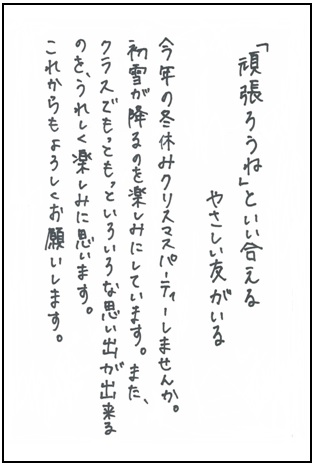 「頑張ろうね」といい合える
やさしい友がいる
今年の冬休みクリスマスパーティーしませんか。
初雪が降るのを楽しみにしています。また、
クラスでもっともっといろいろな思い出が出来る
のを、うれしく楽しみに思います。
これからもよろしくお願いします。